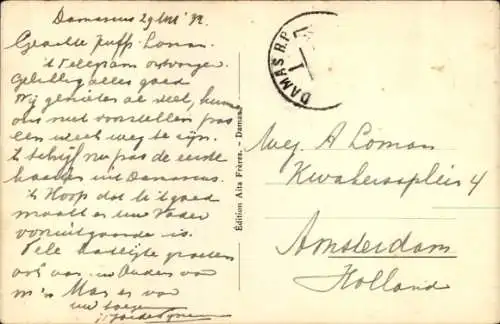 Damascus 29 Mei '32.
Geachte Juffr. Loman.
't Telegram ontvangen.
Gelukkig alles goed
Wij genieten al veel, kunnen
ons niet voorstellen pas
een week weg te zijn.
'k schrijf nu pas de eerste
kaarten uit Damascus.
'k Hoop dat U 't goed
maakt en Uw Vader
vooruitgaande is.
Vele hartelijke groeten
ook van Ouders van
m'n Man en van
DAMAS R.P.
1
Édition Aita Frères. - Damas
Mej. A Loman
Kwakersplein 4
Amsterdam
Holland